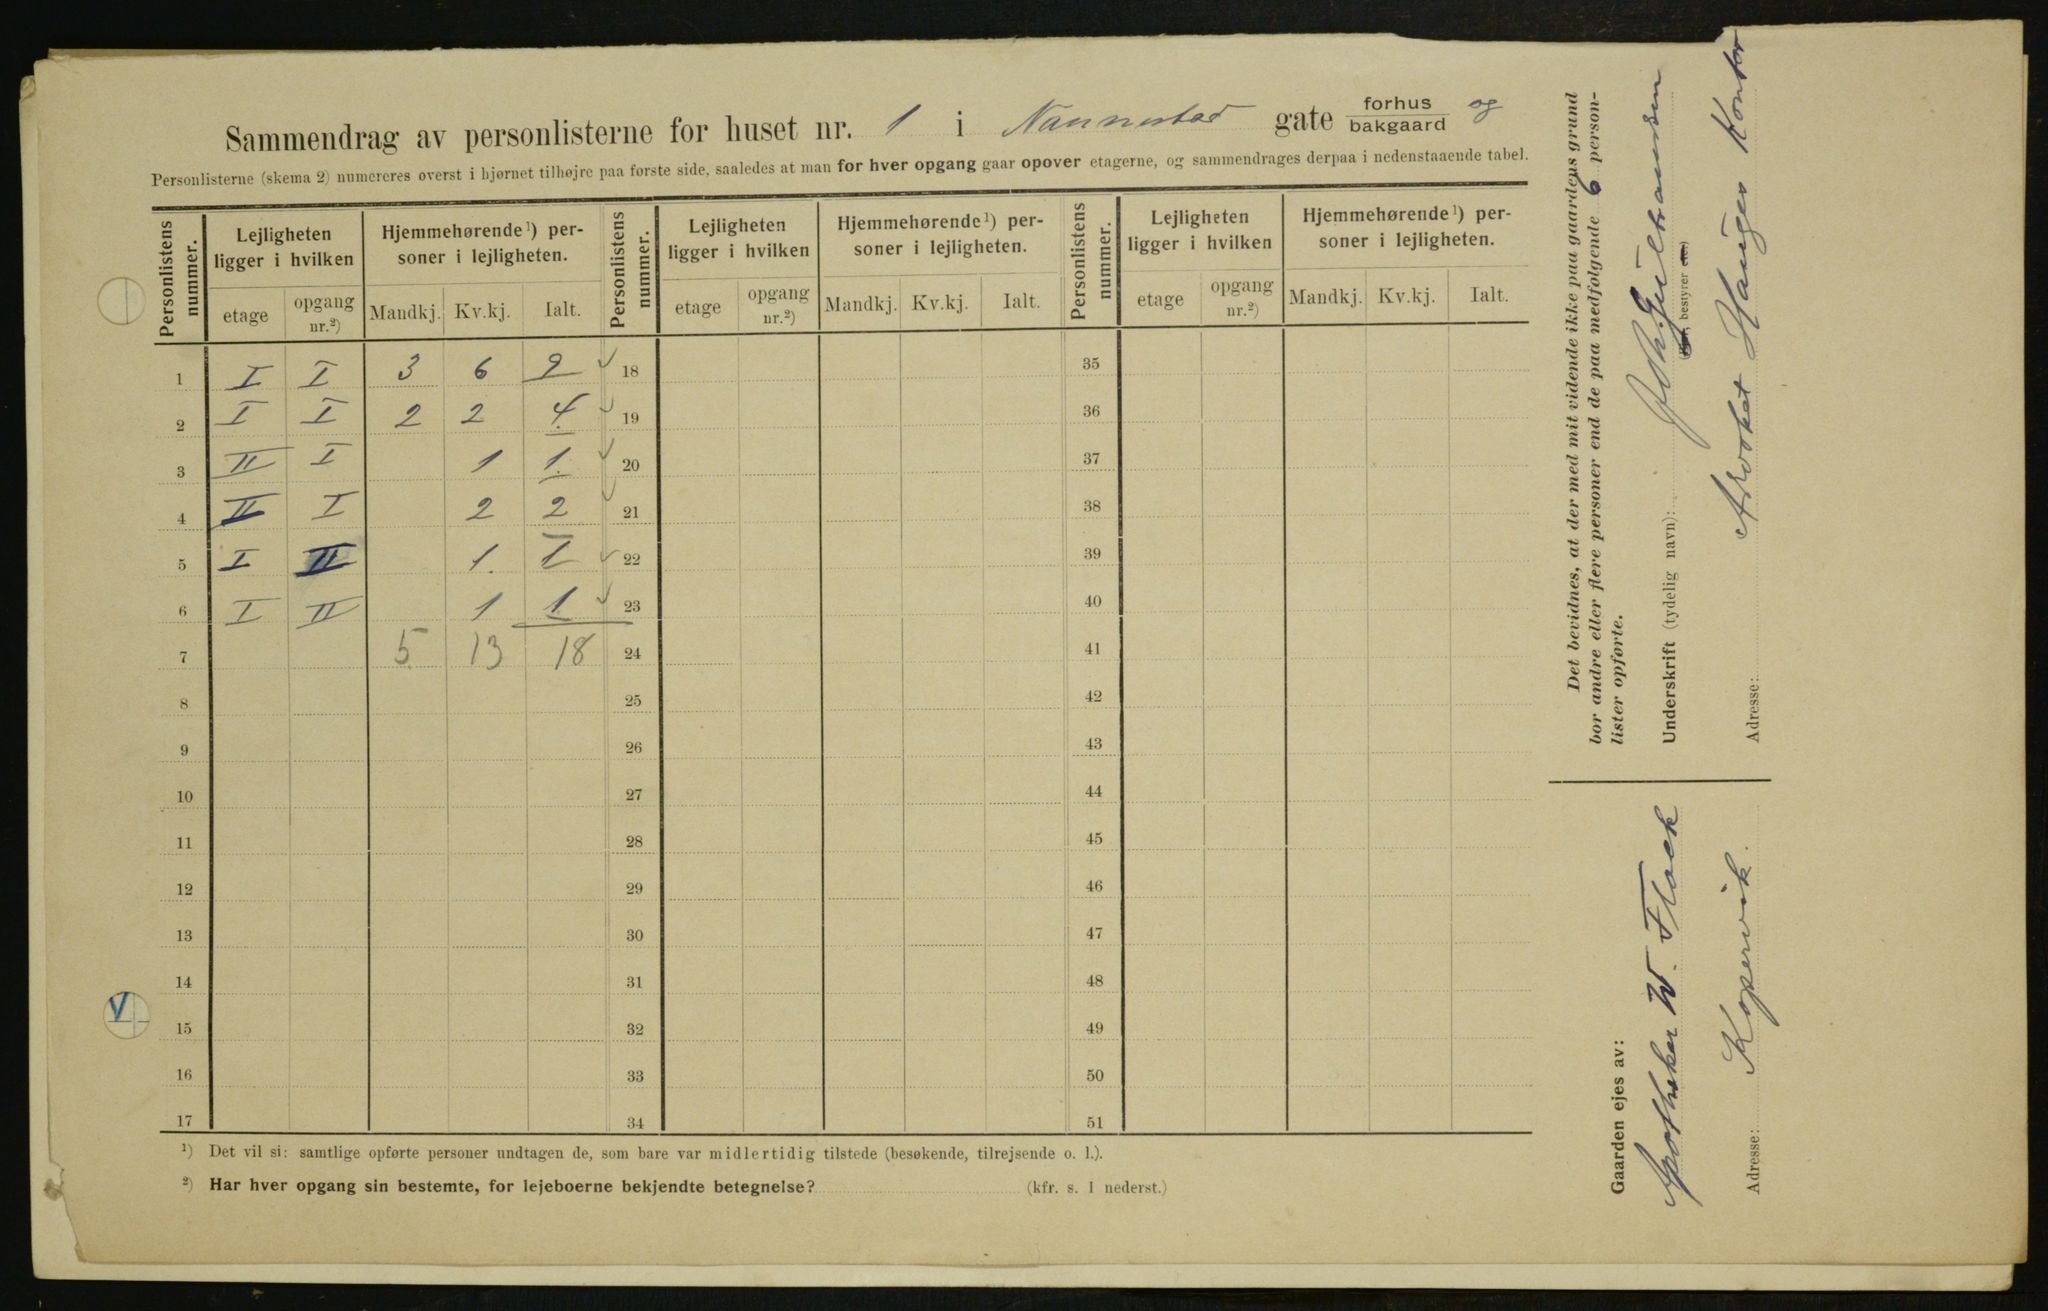 Sammendrag av personlisterne for huset nr. 1 i Nannestad gate forhus og bakgaard
Personlisterne (skema 2) numereres øverst i hjørnet tilhøjre paa første side, saaledes at man for hver opgang gaar opover etagerne, og sammendrages derpaa i nedenstaaende tabel.
Personlistens nummer. Lejligheten ligger i hvilken Hjemmehørende¹) personer i lejligheten. Personlistens nummer. Lejligheten ligger i hvilken Hjemmehørende¹) personer i lejligheten. Personlistens nummer. Lejligheten ligger i hvilken Hjemmehørende¹) personer i lejligheten.
etage opgang nr.²) Mandkj. Kv.kj. Ialt. etage opgang nr.²) Mandkj. Kv.kj. Ialt. etage opgang nr.²) Mandkj. Kv.kj. Ialt.
1 I I 3 6 9 18 35
2 I I 2 2 4 19 36
3 II I 1 1 20 37
4 II I 2 2 21 38
5 I II 1 1 22 39
6 I II 1 1 23 40
7 5 13 18 24 41
8 25 42
9 26 43
10 27 44
11 28 45
12 29 46
13 30 47
14 31 48
15 32 49
16 33 50
17 34 51
V
¹) Det vil si: samtlige opførte personer undtagen de, som bare var midlertidig tilstede (besøkende, tilrejsende o. l.).
²) Har hver opgang sin bestemte, for lejeboerne bekjendte betegnelse? (kfr. s. 1 nederst.)
Det bevidnes, at der med mit vidende ikke paa gaardens grund
bor andre eller flere personer end de paa medfølgende 6 person-
lister opførte.
Underskrift (tydelig navn):
bestyrer
Adresse: Advokat Hauges Kontor
Gaarden ejes av:
Apotheker W. Flock
Adresse: Kopervik.